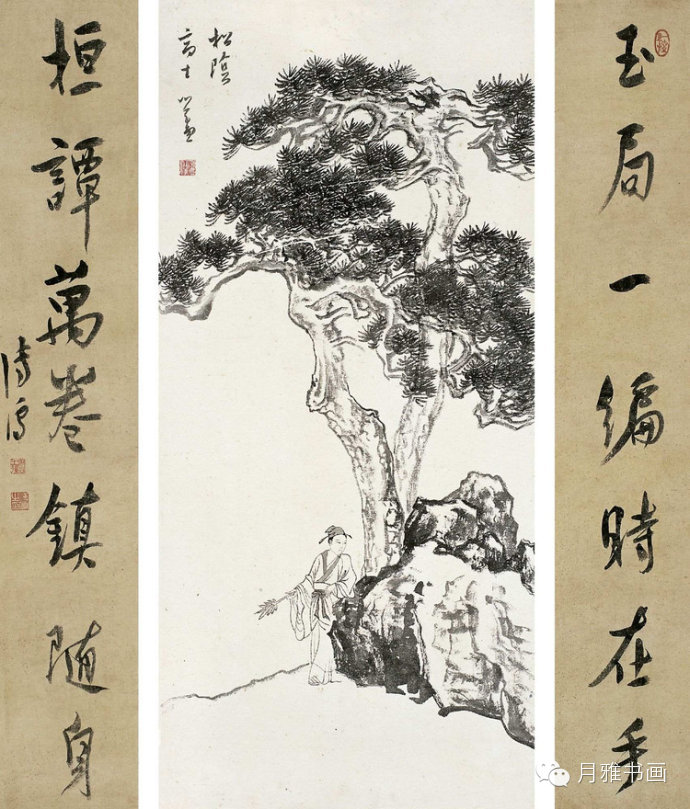 玉局一編時在手
松陰
高士 心畬
桓譚萬卷鎮随身
溥儒
月雅书画